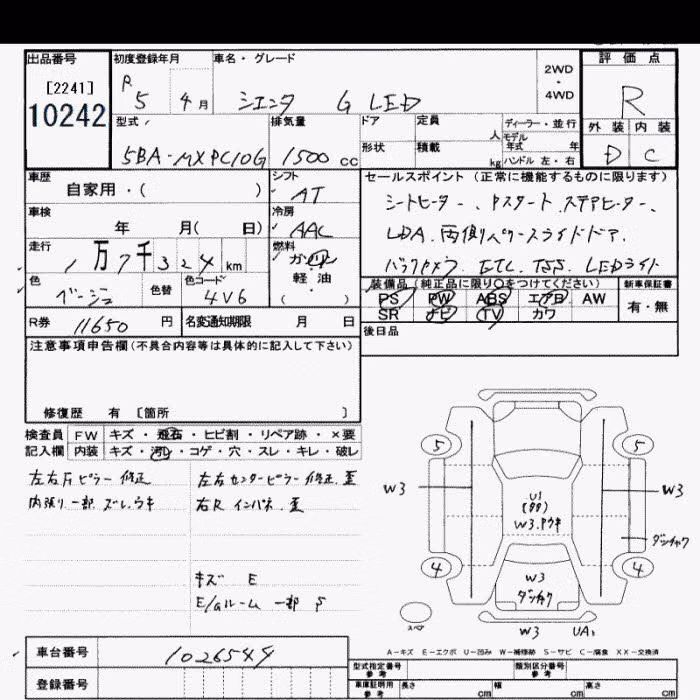 出品番号 初度登録年月 車名・グレード 2WD・4WD 評価点
[2241]
10242
R 5 4月 シエンタ G LED R
型式 排気量 ドア 定員 人 ディーラー・並行 外装 内装
5BA-MXPC10G 1500cc 形状 積載 kg モデル年式 年 ハンドル 左・右 D C
車歴 シフト セールスポイント(正常に機能するものに限ります)
自家用・( ) AT シートヒーター、Pスタート、ステアヒーター、
車検 年 月( 日) 冷房 AAC LDA、両側パワースライドドア、
走行 1万7千324km 燃料 ガソリン 軽油・( ) バックカメラ ETC、TSS、LEDライト
色 ベージュ 色替 色コード 4V6
装備品(純正品に限り○をつけてください) 新車保証書
PS PW ABS エアB AW 有・無
SR ナビ TV カワ
R券 11650円 名変通知期限 月 日 後日品
注意事項申告欄(不具合内容等は具体的に記入して下さい)
修復歴 有 [箇所 ]
検査員記入欄 FW キズ・飛石・ヒビ割・リペア跡・×要
内装 キズ・汚レ・コゲ・穴・スレ・キレ・破レ
左右Fピラー 修正 左右センターピラー 修正、歪
内張り一部 ズレ、ウキ 右R インパネ、歪
キズ E
E/Gルーム 一部 S
5 5
W3 W3
U1
W3、ワキ
ダンチャク
4 4
W3
ダンチャク
スペア W3 UA1
A-キズ E-エクボ U-凹み W-補修跡 S-サビ C-腐食 XX-交換済
車台番号 1026549 型式指定番号 参考 類別区分番号 参考
登録番号 車庫証明用 参考 長さ cm 幅 cm 高さ cm